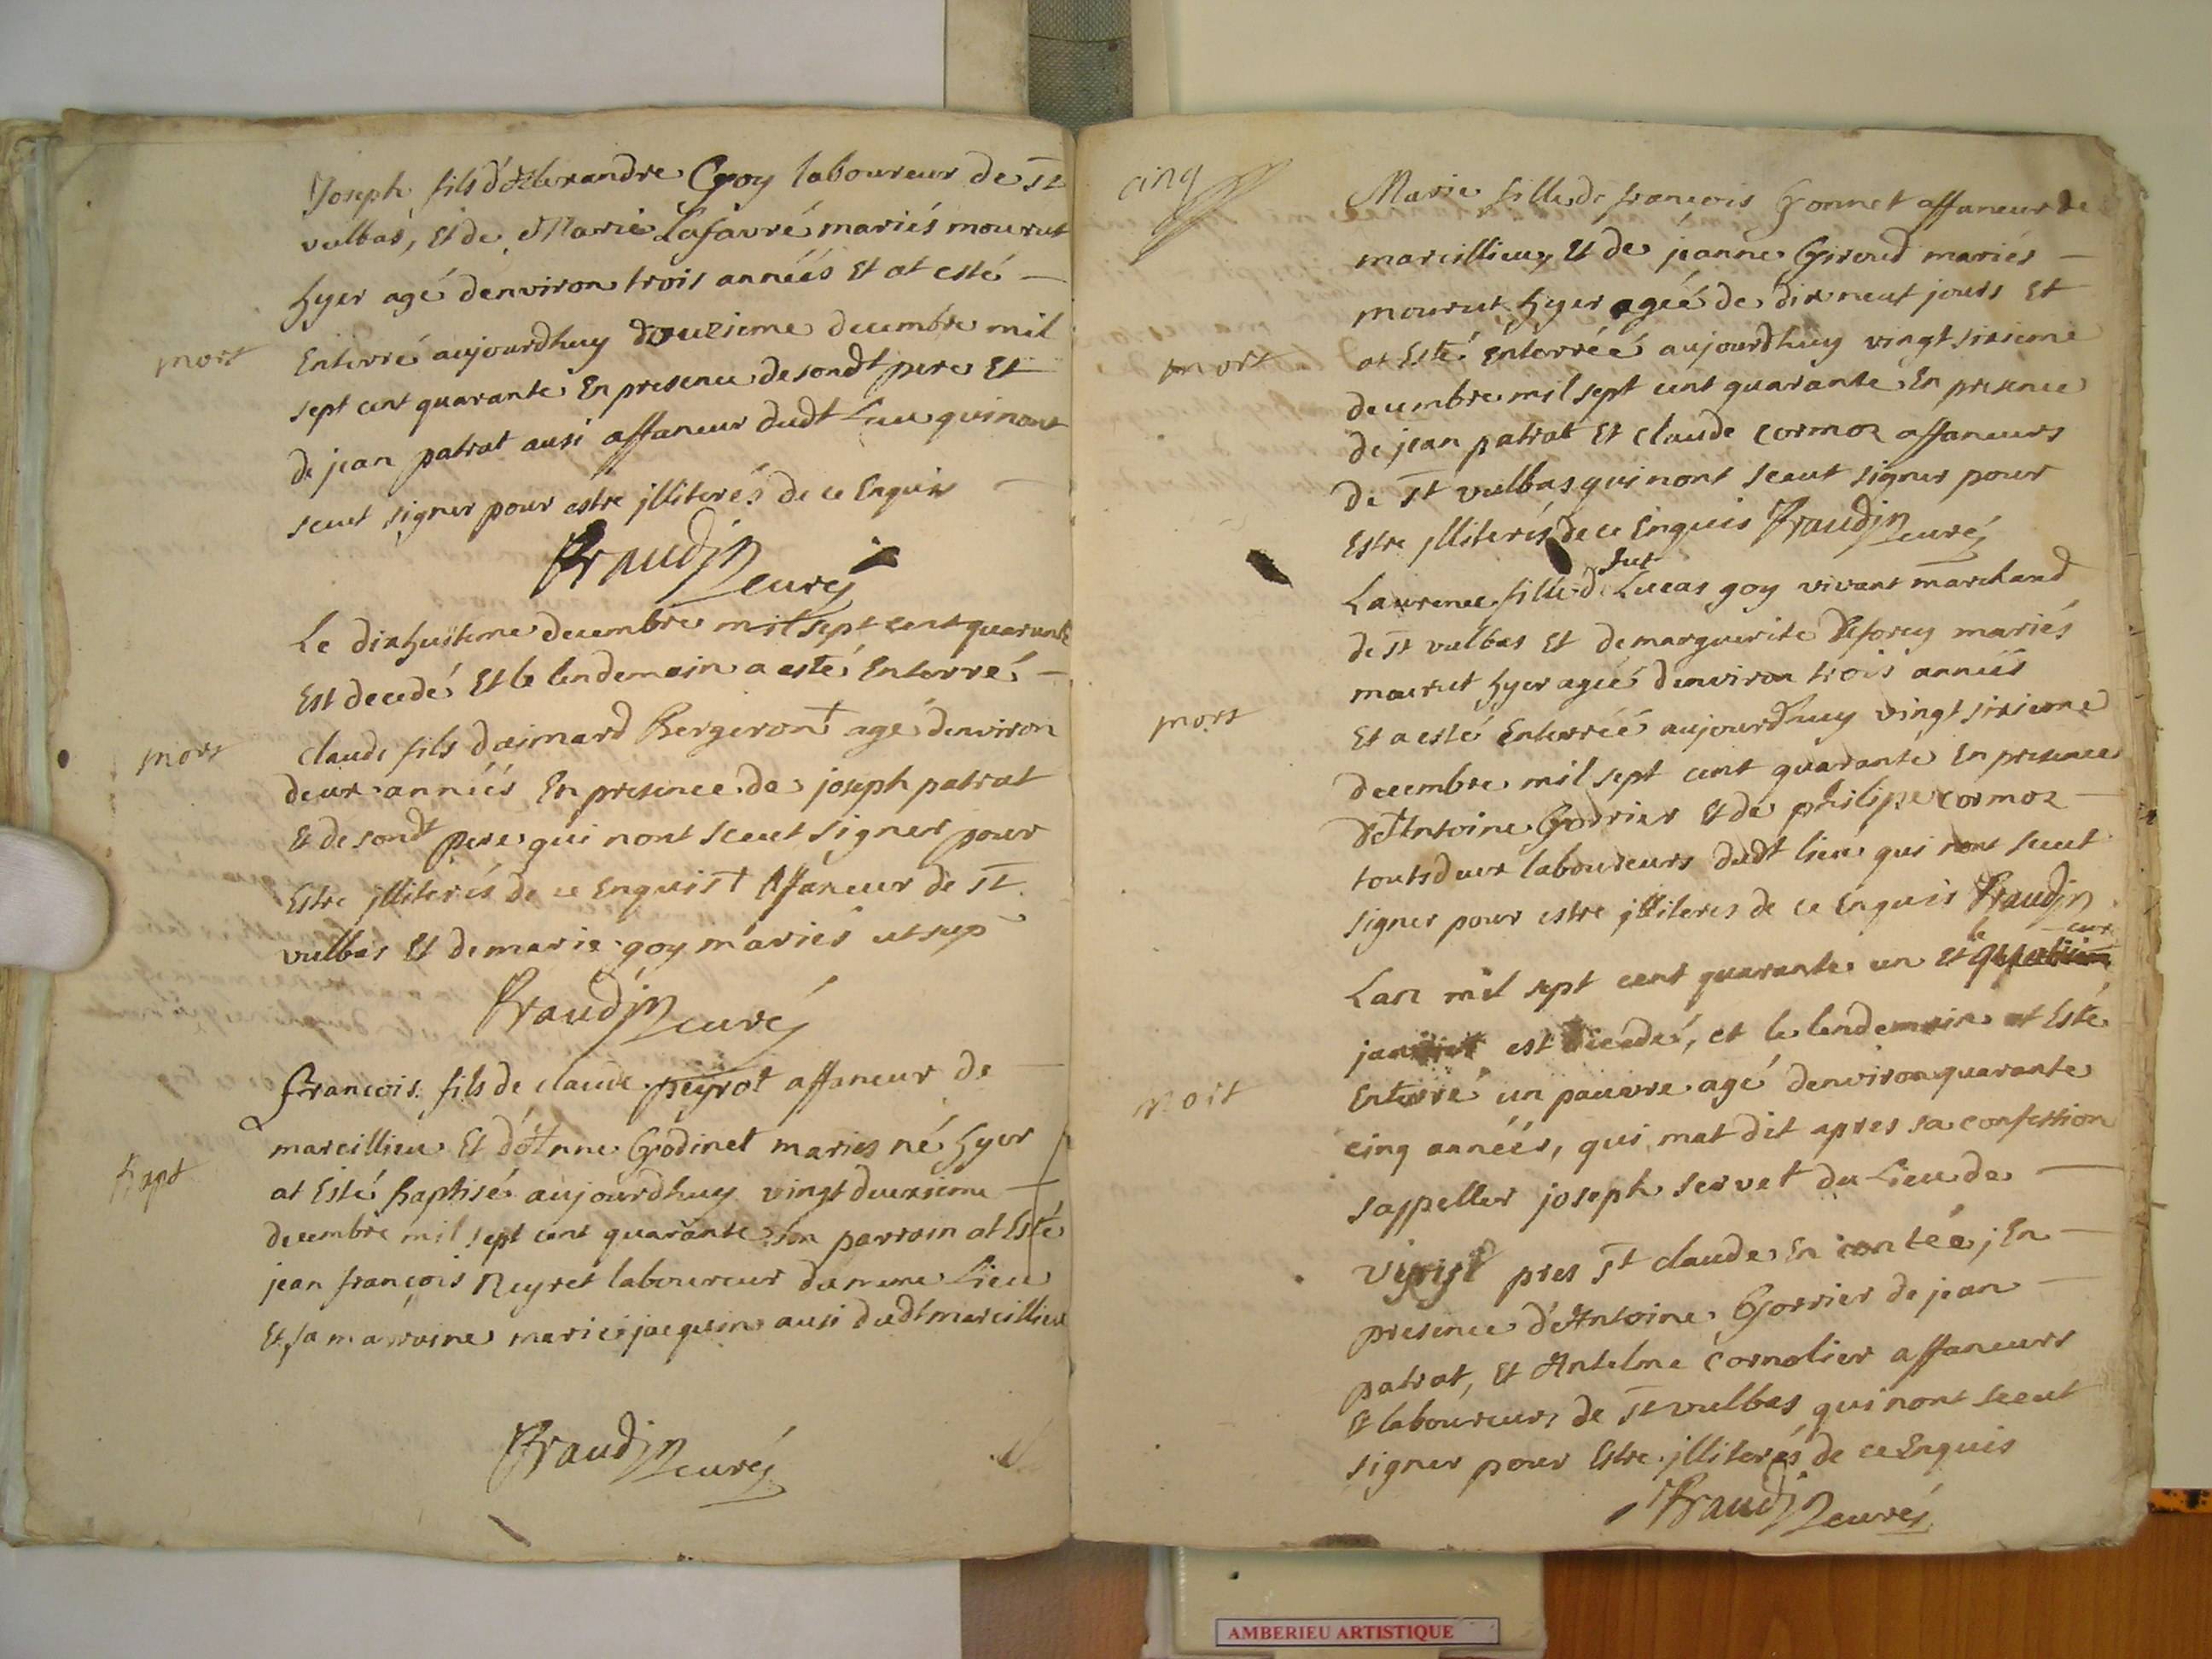 Joseph fils d'Alexandre Goy laboureur de St
vulbas, Et de Marie Lafavre mariés mourut
hyer agé denviron trois années Et at esté
mort
Enterré aujourdhuy douzieme decembre mil
sept cent quarante En presence de sondt pere Et
de jean patrat ausi affaneur dudt Lieu qui nont
sceut signer pour estre jlliterés de ce Enquis
Braudin curé
Le dixhuitieme decembre mil sept cent quarante
Est decedé Et le lendemain a esté Enterré
mort
claude fils daimard Bergeron + agé denviron
deux années En presence de joseph patrat
Et de sondt pere qui nont sceut signer pour
Estre jlliterés de ce Enquis + Affaneur de St
vulbas Et de marie goy mariés ut sup
Braudin curé
francois fils de claude peyrot affaneur de
marcillieu Et d'Anne Godinet maries né hyer
bapt
at Esté baptisé aujourdhuy vingt deuxieme
decembre mil sept cent quarante son parrain at Esté
jean françois Neyret laboureur du meme Lieu
Et sa marraine marie jacquin ausi dudt marcillieu
Braudin curé
cinq
Marie fille de françois Gonnet affaneur de
marcillieu, Et de jeanne Giroud mariés
mourut hyer ageé de dix neuf jours Et
mort
at Esté enterréé aujourdhuy vingt sixieme
decembre mil sept cent quarante En presence
de jean patrat Et claude cormoz affaneurs
de St vulbas qui nont sceut signer pour
Estre jlliterés de ce Enquis Braudin curé
Laurence fille de fut Lucas goy vivant marchand
de St vulbas Et de marguerite Deforey mariés
mourut hyer ageé denviron trois années
mort
Et a esté Enterréé aujourdhuy vingt sixieme
decembre mil sept cent quarante En presence
D'Antoine Gorrier Et de philipe cormoz
touts deux laboureurs dudt lieu qui nont sceut
signer pour estre jlliteres de ce Enquis Braudin
cure
Lan mil sept cent quarante un et le
janvier est decedé, et le lendemain at Esté
mort
Enterré un pauvre agé denviron quarante
cinq années, qui mat dit apres sa confession
sappeller joseph servet du Lieu de
pres St claude En contéé, En
presence d'Antoine Gorrier de jean
patrat, Et Antelme Cornolier affaneurs
Et laboureurs de St vulbas qui nont sceut
signer pour Estre jlliterés de ce Enquis
Braudin curé
AMBERIEU ARTISTIQUE